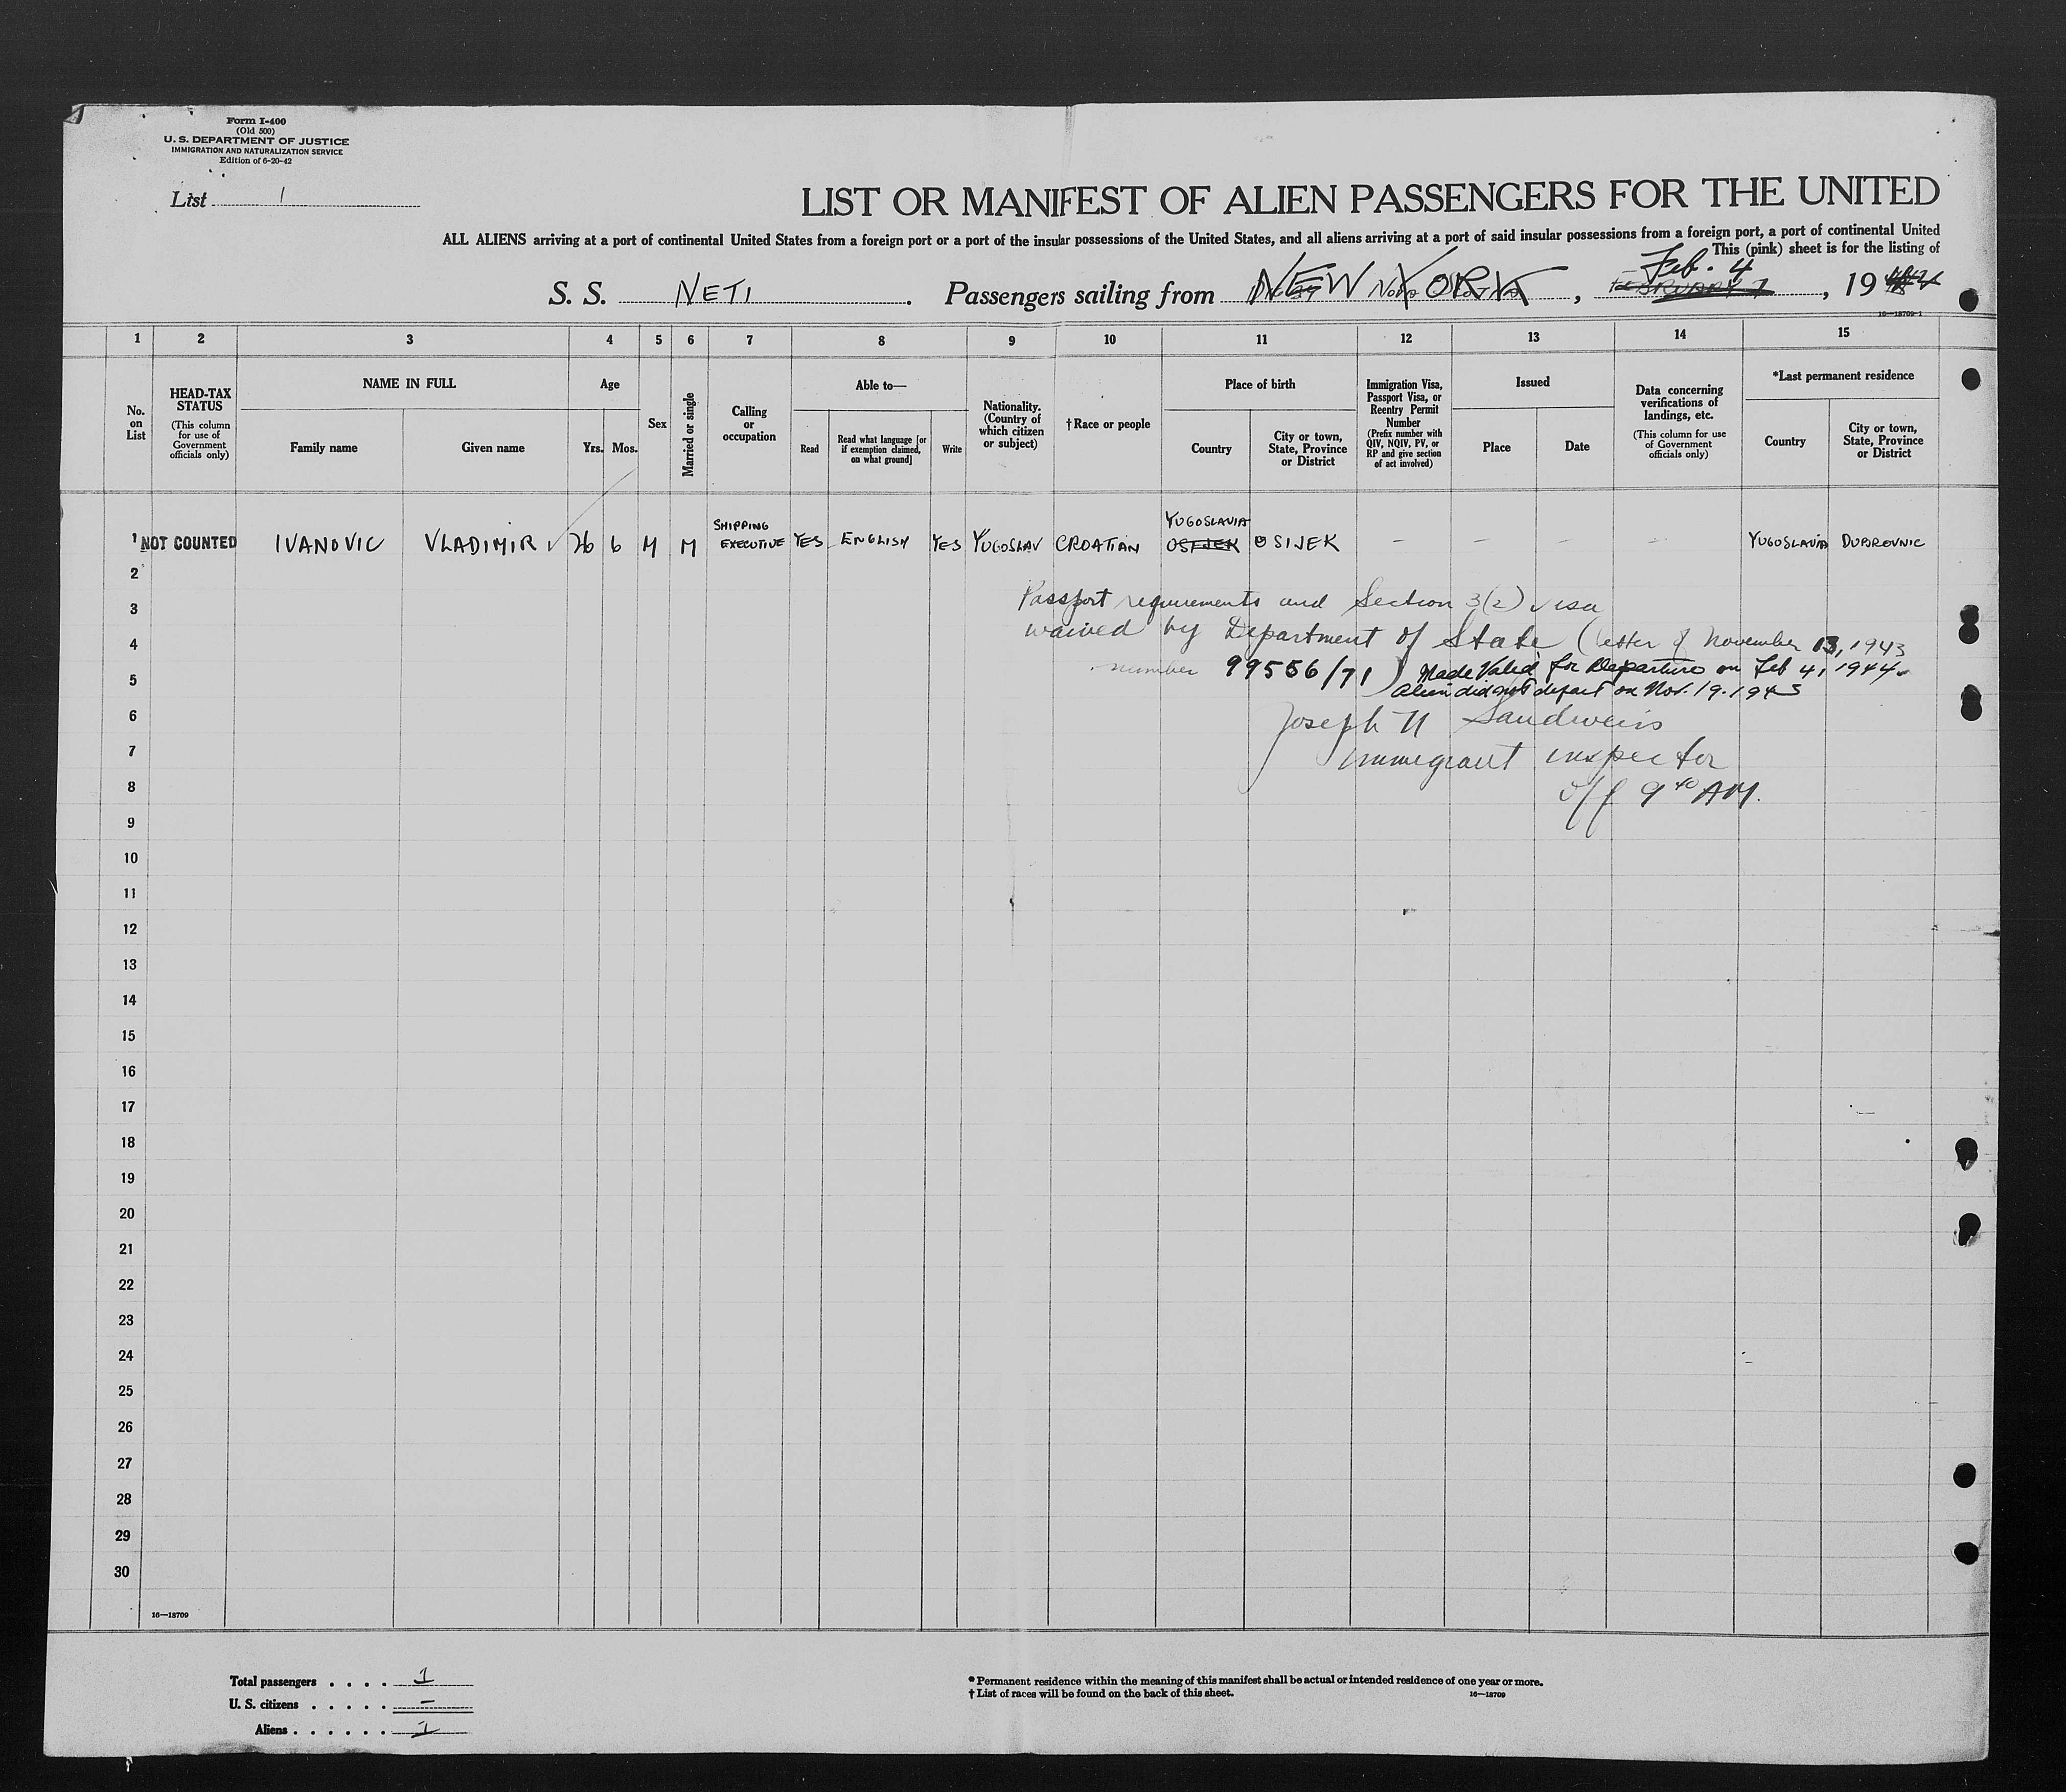 Form I-400
(Old 500)
U. S. DEPARTMENT OF JUSTICE
IMMIGRATION AND NATURALIZATION SERVICE
Edition of 6-20-42
List 1
LIST OR MANIFEST OF ALIEN PASSENGERS FOR THE UNITED
ALL ALIENS arriving at a port of continental United States from a foreign port or a port of the insular possessions of the United States, and all aliens arriving at a port of said insular possessions from a foreign port, a port of continental United
This (pink) sheet is for the listing of
Feb. 4
S. S. NETI . Passengers sailing from NEW YORK , FEBRUARY , 19
16—18709-1
1 2 3 4 5 6 7 8 9 10 11 12 13 14 15
No. on List
HEAD-TAX STATUS
(This column for use of Government officials only)
NAME IN FULL
Family name
Given name
Age
Yrs.
Mos.
Sex
Married or single
Calling or occupation
Able to—
Read
Read what language [or if exemption claimed, on what ground]
Write
Nationality. (Country of which citizen or subject)
†Race or people
Place of birth
Country
City or town, State, Province or District
Immigration Visa, Passport Visa, or Reentry Permit Number
(Prefix number with QIV, NQIV, PV, or RP and give section of act involved)
Issued
Place
Date
Data concerning verifications of landings, etc.
(This column for use of Government officials only)
*Last permanent residence
Country
City or town, State, Province or District
SHIPPING YUGOSLAVIA
1 NOT COUNTED IVANOVIC VLADIMIR 26 6 M M EXECUTIVE YES ENGLISH YES YUGOSLAV CROATIAN OSIJEK OSIJEK – – – – YUGOSLAVIA DUBROVNIC
2
3 Passport requirements and Section 3(2) visa
4 waived by Department of State (letter of November 13, 1943
number 99556/71) Made Valid for Departure on Feb 4, 1944
5 Alien did not depart on Nov. 19. 1943
6 Joseph H Sandweiss
7 Immigrant inspector
8 off 9 40 AM.
9
10
11
12
13
14
15
16
17
18
19
20
21
22
23
24
25
26
27
28
29
30
16—18709
Total passengers . . . . 1
U. S. citizens . . . . . –
Aliens . . . . . . 1
* Permanent residence within the meaning of this manifest shall be actual or intended residence of one year or more.
† List of races will be found on the back of this sheet.
16—18709